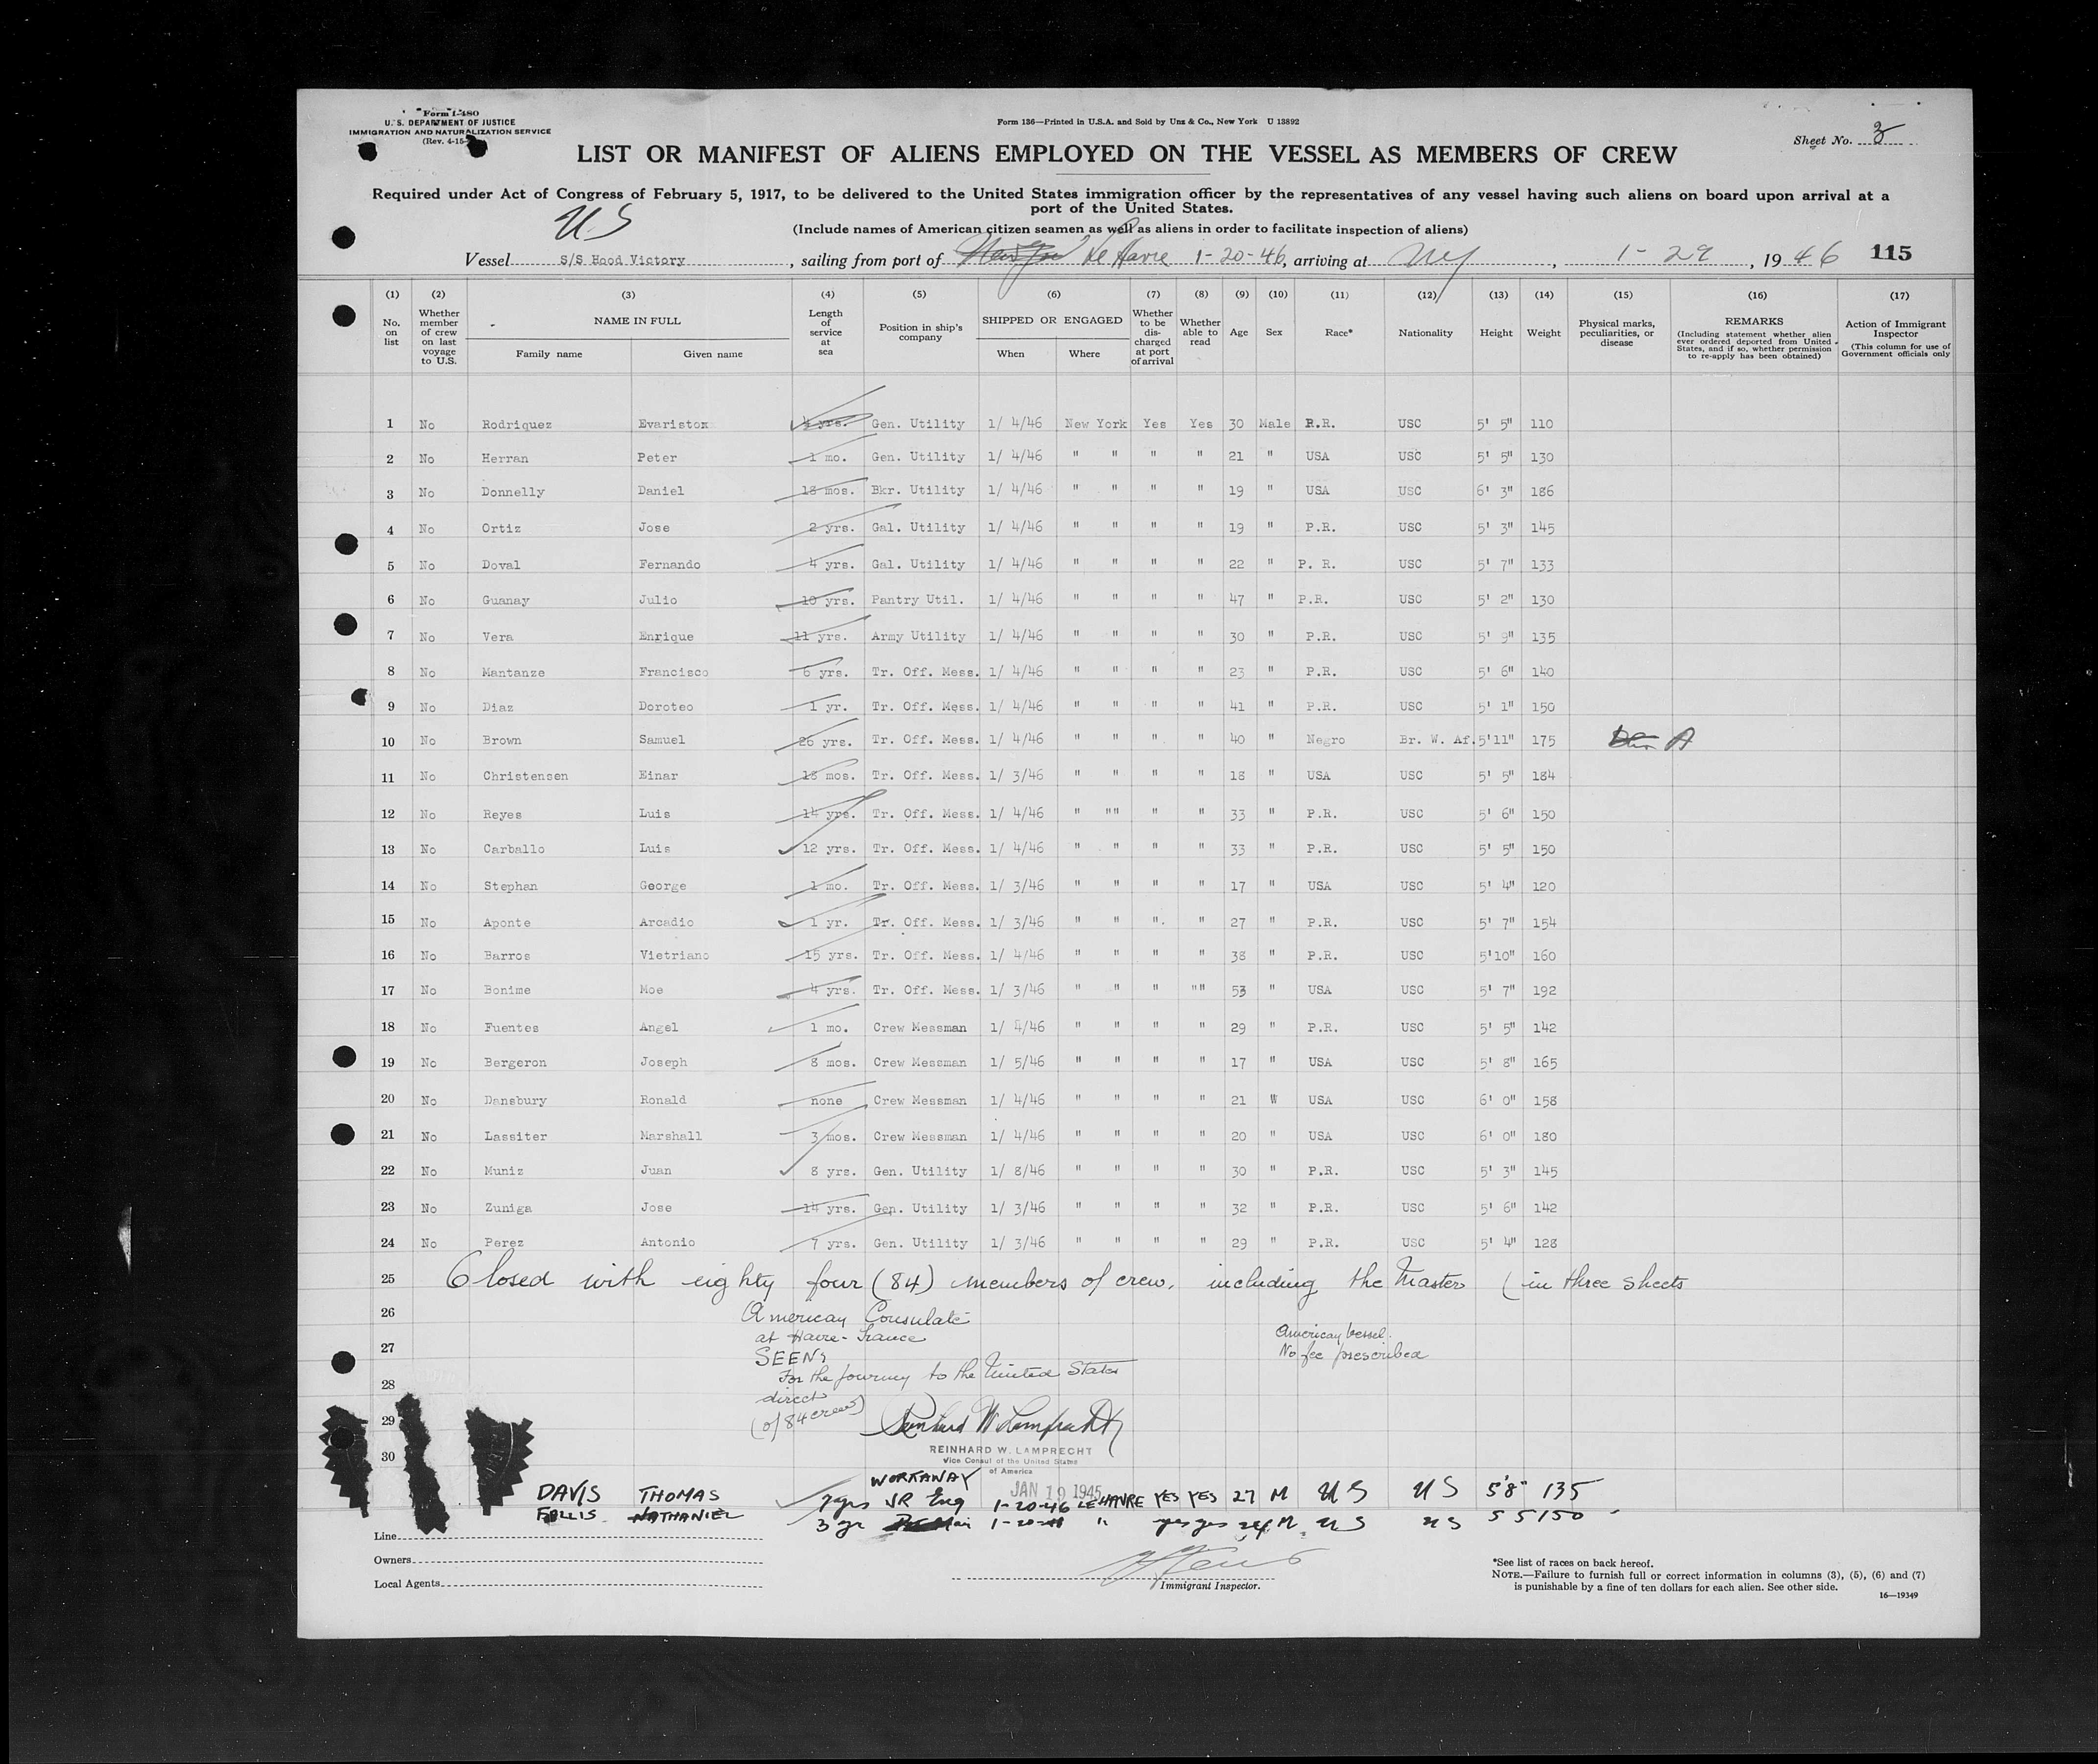 Form I-480
U. S. DEPARTMENT OF JUSTICE
IMMIGRATION AND NATURALIZATION SERVICE
(Rev. 4-15-
Form 136—Printed in U.S.A. and Sold by Unz & Co., New York U 13892
Sheet No. 3
LIST OR MANIFEST OF ALIENS EMPLOYED ON THE VESSEL AS MEMBERS OF CREW
Required under Act of Congress of February 5, 1917, to be delivered to the United States immigration officer by the representatives of any vessel having such aliens on board upon arrival at a
port of the United States.
US
(Include names of American citizen seamen as well as aliens in order to facilitate inspection of aliens)
Vessel S/S Hood Victory, sailing from port of Le Havre 1-20-46, arriving at NY, 1-29, 1946 115
(1) (2) (3) (4) (5) (6) (7) (8) (9) (10) (11) (12) (13) (14) (15) (16) (17)
No. on list Whether member of crew on last voyage to U.S. NAME IN FULL Family name Given name Length of service at sea Position in ship's company SHIPPED OR ENGAGED When Where Whether to be discharged at port of arrival Whether able to read Age Sex Race* Nationality Height Weight Physical marks, peculiarities, or disease REMARKS (Including statement whether alien ever ordered deported from United States, and if so, whether permission to re-apply has been obtained) Action of Immigrant Inspector (This column for use of Government officials only
1 No Rodriquez Evaristox 4 yrs. Gen. Utility 1/ 4/46 New York Yes Yes 30 Male P.R. USC 5' 5" 110
2 No Herran Peter 1 mo. Gen. Utility 1/ 4/46 " " " " 21 " USA USC 5' 5" 130
3 No Donnelly Daniel 18 mos. Bkr. Utility 1/ 4/46 " " " " 19 " USA USC 6' 3" 186
4 No Ortiz Jose 2 yrs. Gal. Utility 1/ 4/46 " " " " 19 " P.R. USC 5' 3" 145
5 No Doval Fernando 4 yrs. Gal. Utility 1/ 4/46 " " " " 22 " P. R. USC 5' 7" 133
6 No Guanay Julio 10 yrs. Pantry Util. 1/ 4/46 " " " " 47 " P.R. USC 5' 2" 130
7 No Vera Enrique 11 yrs. Army Utility 1/ 4/46 " " " " 30 " P.R. USC 5' 9" 135
8 No Mantanze Francisco 6 yrs. Tr. Off. Mess. 1/ 4/46 " " " " 23 " P.R. USC 5' 6" 140
9 No Diaz Doroteo 1 yr. Tr. Off. Mess. 1/ 4/46 " " " " 41 " P.R. USC 5' 1" 150
10 No Brown Samuel 26 yrs. Tr. Off. Mess. 1/ 4/46 " " " " 40 " Negro Br. W. Af. 5'11" 175 A
11 No Christensen Einar 18 mos. Tr. Off. Mess. 1/ 3/46 " " " " 18 " USA USC 5' 5" 184
12 No Reyes Luis 14 yrs. Tr. Off. Mess. 1/ 4/46 " "" " " 33 " P.R. USC 5' 6" 150
13 No Carballo Luis 12 yrs. Tr. Off. Mess. 1/ 4/46 " " " " 33 " P.R. USC 5' 5" 150
14 No Stephan George 1 mo. Tr. Off. Mess. 1/ 3/46 " " " " 17 " USA USC 5' 4" 120
15 No Aponte Arcadio 1 yr. Tr. Off. Mess. 1/ 3/46 " " " " 27 " P.R. USC 5' 7" 154
16 No Barros Vietriano 15 yrs. Tr. Off. Mess. 1/ 4/46 " " " " 38 " P.R. USC 5'10" 160
17 No Bonime Moe 4 yrs. Tr. Off. Mess. 1/ 3/46 " " " "" 53 " USA USC 5' 7" 192
18 No Fuentes Angel 1 mo. Crew Messman 1/ 4/46 " " " " 29 " P.R. USC 5' 5" 142
19 No Bergeron Joseph 8 mos. Crew Messman 1/ 5/46 " " " " 17 " USA USC 5' 8" 165
20 No Dansbury Ronald none Crew Messman 1/ 4/46 " " " " 21 W USA USC 6' 0" 158
21 No Lassiter Marshall 3 mos. Crew Messman 1/ 4/46 " " " " 20 " USA USC 6' 0" 180
22 No Muniz Juan 8 yrs. Gen. Utility 1/ 8/46 " " " " 30 " P.R. USC 5' 3" 145
23 No Zuniga Jose 14 yrs. Gen. Utility 1/ 3/46 " " " " 32 " P.R. USC 5' 6" 142
24 No Perez Antonio 7 yrs. Gen. Utility 1/ 3/46 " " " " 29 " P.R. USC 5' 4" 128
25 Closed with eighty four (84) members of crew, including the Master (in three sheets
26 American Consulate
at Havre - France American vessel.
27 SEEN, No fee prescribed
For the journey to the United States
28 direct
29 (of 84 crew) Reinhard W. Lamprecht
30 REINHARD W. LAMPRECHT
Vice Consul of the United States
of America
WORKAWAY JAN 19 1945
DAVIS THOMAS 7 yrs JR Eng 1-20-46 LE HAVRE YES YES 27 M US US 5'8" 135
FOLLIS NATHANIEL 3 yr 1-20-46 " yes yes 24 M. US US 5 5 150
Line
Owners
Local Agents
Immigrant Inspector.
*See list of races on back hereof.
NOTE.—Failure to furnish full or correct information in columns (3), (5), (6) and (7)
is punishable by a fine of ten dollars for each alien. See other side.
16—19349